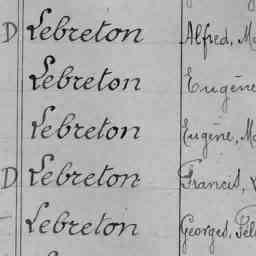 D Lebreton Alfred, M
Lebreton Eugène
Lebreton Eugène, M
D Lebreton Francis,
Lebreton Georges, Fél